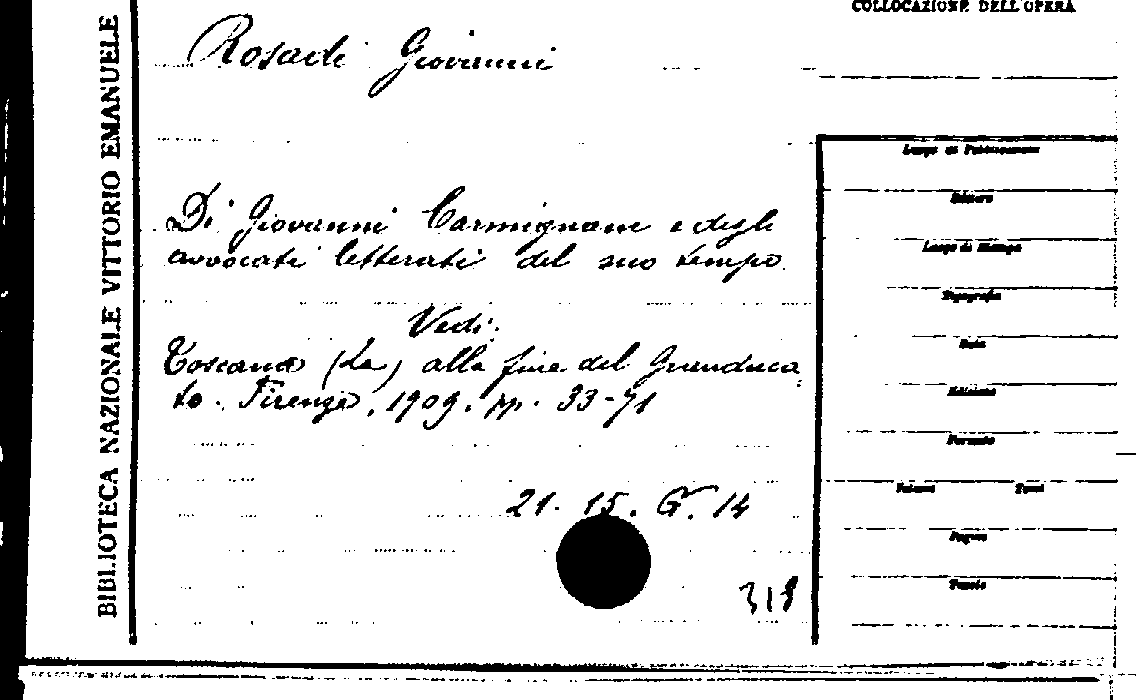 COLLOCAZIONE DELL'OPERA
BIBLIOTECA NAZIONALE VITTORIO EMANUELE
Rosadi Giovanni
Di Giovanni Carmignani e degli
avvocati letterati del suo tempo.
Vedi:
Toscana (La) alla fine del Granduca
to. Firenze, 1909. pp. 33-71
21. 15. G. 14
318
Luogo di Pubblicazione
Editore
Luogo di Stampa
Tipografia
Data
Edizione
Formato
Volumi Tomi
Pagine
Tavole